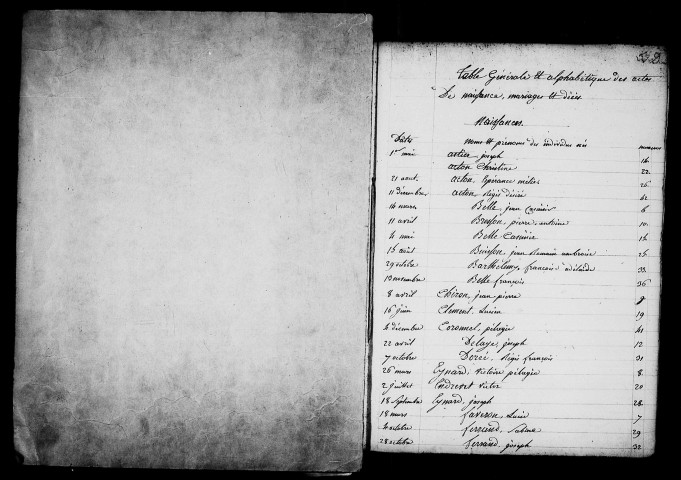 Table Générale et alphabétique des actes
De naissance, mariages et décès
Naissances.
Dates noms et prénoms des individus nés numéros
1er mai astier joseph 16
acton Christine 22
21 aout acton, Espérance 26
11 Décembre acton Régis désiré 42
16 mars Belle, jean 6
11 avril Buisson, pierre, antoine 10
4 mai Belle Casimir 15
15 août Buisson, jean Romain ambroise 25
29 octobre Barthélemy, françois adélaïde 33
13 novembre Belle françois 36
8 avril Chiron, jean pierre 9
16 juin Clement, Lucien 19
4 décembre Coronnel, pélagie 41
22 avril Delaye, joseph 12
7 octobre Dorée, Régis françois 31
26 mars Eynard, victoire pélagie 8
2 juillet Endrevet victor 20
18 Septembre Eynard, joseph 28
18 mars faveron, Lucie 7
4 octobre ferriend, Sabine 29
28 octobre ferrand, joseph 32